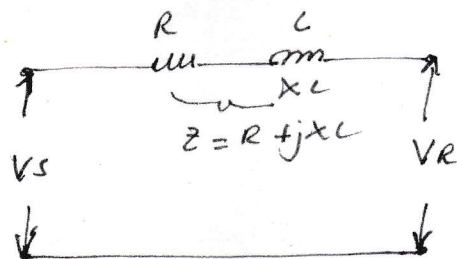 R L
XL
Z = R + jXL
VS VR